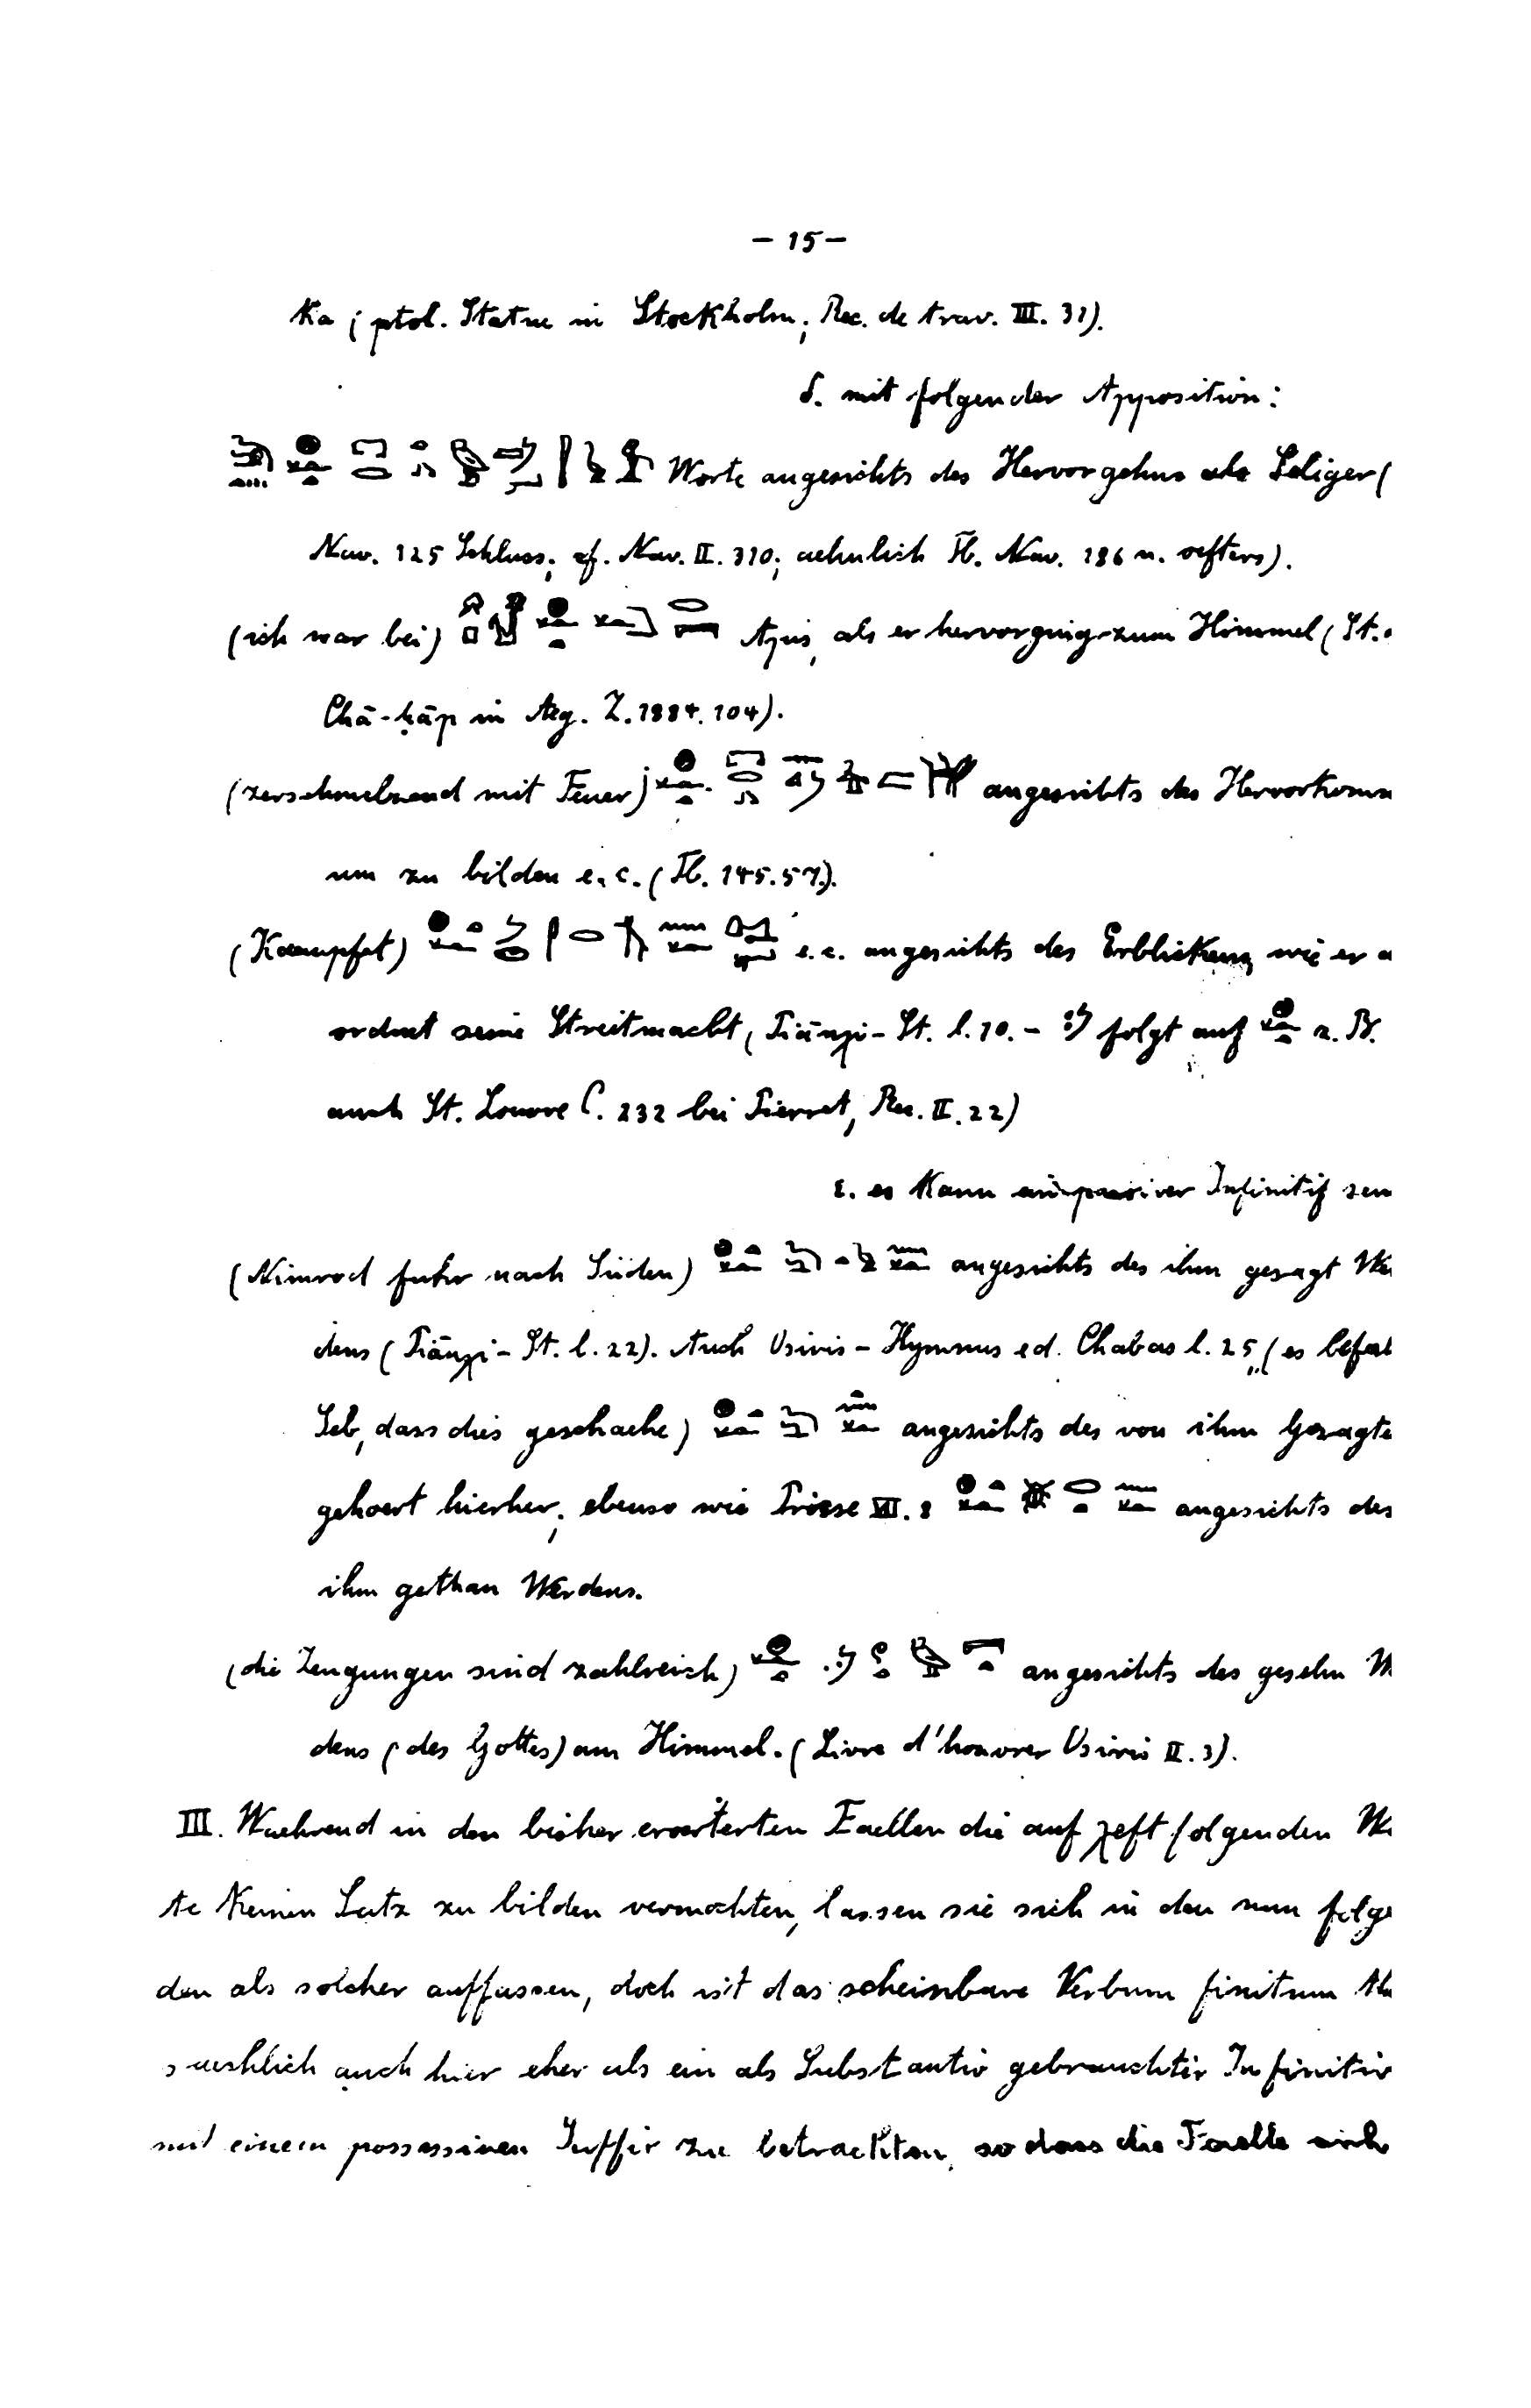 – 15 –
Ka (ptol. Statue in Stockholm; Rec. de trav. III. 31).
δ. mit folgender Apposition:
Worte angesichts des Hervorgehns als Seliger (
Nav. 125 Schluss; cf. Nav. II. 310; aehnlich Tb. Nav. 186 u. oefters).
(ich war bei) Apis, als er hervorging zum Himmel (St.
Chā-ḥāp in Aeg. Z. 1884. 104).
(zerschmelzend mit Feuer) angesichts des Hervorkomm
um zu bilden e. c. (Tb. 145. 57).
(Kaempfet) e. c. angesichts des Erblickens wie er a
ordnet seine Streitmacht (Piānχi-St. l. 10. – folgt auf z. B.
auch St. Louvre C. 232 bei Pierret, Rec. II. 22)
ε. es Kann ein passiver Infinitif sein
(Nimrod fuhr nach Süden) angesichts des ihm gesagt Wer
dens (Piānχi-St. l. 22). Auch Osiris-Hymnus ed. Chabas l. 25 (es befal
Seb, dass dies geschaehe) angesichts des von ihm Gesagte
gehoert hierher; ebenso wie Prisse VII. 8 angesichts des
ihm gethan Werdens.
(die Zeugungen sind zahlreich) angesichts des gesehn W
dens (des Gottes) am Himmel. (Livre d'honorer Osiris II. 3).
III. Waehrend in den bisher eroerterten Faellen die auf χeft folgenden Wo
te Keinen Satz zu bilden vermochten, lassen sie sich in den nun folge
den als solcher auffassen, doch ist das scheinbare Verbum finitum
saechlich auch hier eher als ein als Substantiv gebrauchter Infinitiv
mit einem possessiven Suffix zu betrachten, so dass die Faelle sich